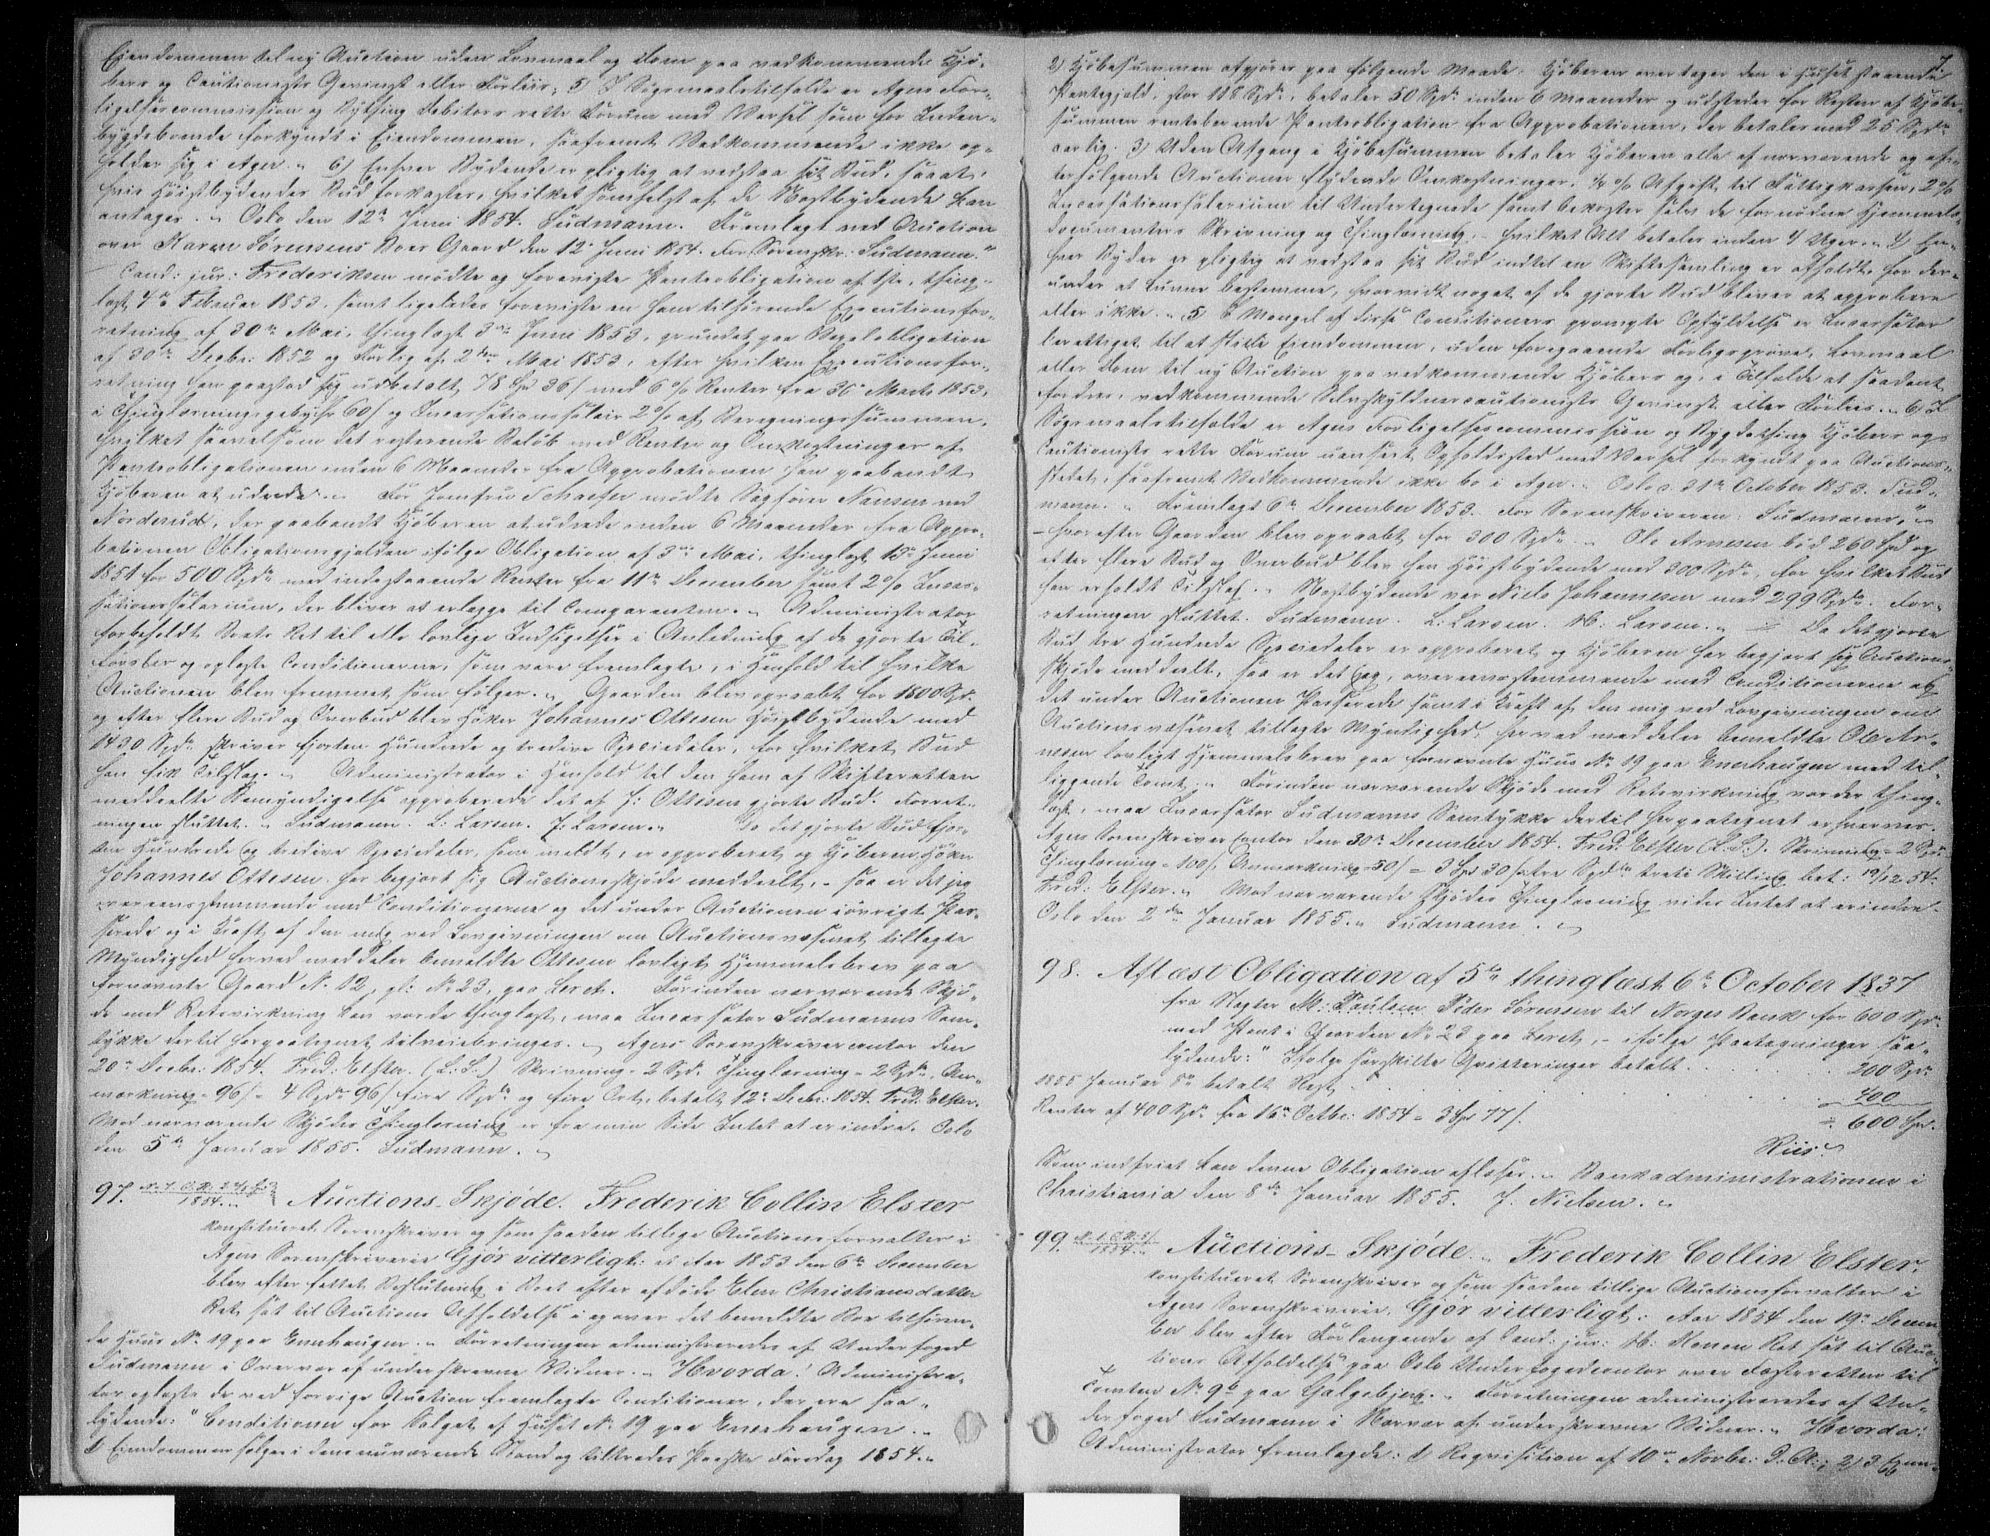 Eiendommen til ny Auction uden Lovmaal og Dom paa vedkommende Kjø-
bers og Cautionists Gevinst eller Forliis; 5) I Søgsmaalstilfælde er Agers For-
ligelsescommission og Bything Debitors rette Forum med Varsel som for Inden-
bygdeboende forkyndt i Eiendommen, saafremt Vedkommende ikke op-
holder sig i Ager. „ 6) Enhver Bydende er pligtig at vedstaa sit Bud, saaat,
hvis Høistbydendes Bud forkastes, hvilketsomhelst af de Mestbydende kan
antages. „ Oslo den 12te Juni 1854. Sudmann. Fremlagt ved Auction
over Karen Sørensens Boes Gaard den 12te Juni 1854. For Sorenskr: Sudmann."
Cand: jur: Frederiksen mødte og foreviste Panteobligation af thing-
lyst 4de Februar 1853, samt ligeledes foreviste en ham tilhørende Executionsfor-
retning af 30te Mai, thinglyst 3die Juni 1853, grundet paa Vexelobligation
af 30te Decbr: 1852 og Forlig af 2den Mai 1853, efter hvilken Executionsfor-
retning han paastod sig udbetalt 78 Spd 36 ß med 6 % Renter fra 30te Marts 1853,
i Thinglæsningsgebyhr 60 ß og Incassationssalair 2 % af Beregningssummen,
hvilket saavelsom det resterende Beløb med Renter og Omkostninger af
Panteobligationen inden 6 Maaneder fra Approbationen han paabandt
Kjøberen at udrede. „ For Jomfru Schaeffer mødte Sagfører Nansen ved
Norderud, der paabandt Kjøberen at udrede inden 6 Maaneder fra Appro-
bationen Obligationsgjælden ifølge Obligation af 3die Mai, thinglyst Juni
1851 for 500 Spd. med indestaaende Renter fra 11te December samt 2 % Incas-
sationssalarium, der bliver at erlægge til Comparenten. „ Administrator
forbeholdt Boets Ret til alle lovlige Indsigelser i Anledning af de gjorte Til-
førsler og oplæste Conditionerne, som vare fremlagte, i Henhold til hvilke
Auctionen blev fremmet som følger. „ Gaarden blev opraabt for 1800 Spd.
og efter flere Bud og Overbud blev Høker Johannes Ottesen Høistbydende med
1430 Spd. skriver fjorten Hundrede og tredive Speciedaler, for hvilket Bud
han fik Tilslag. „ Administrator i Henhold til den ham af Skifteretten
meddeelte Bemyndigelse approberede det af J: Ottesen gjorte Bud. Forret-
ningen sluttet. „ Sudmann. L: Larsen. J: Larsen. „ Da det gjorte Bud fjor-
ten Hundrede og tredive Speciedaler, som meldt, er approberet og Kjøberen Høker
Johannes Ottesen har begjært sig Auctionsskjøde meddeelt, – saa er det jeg
overeensstemmende med Conditionerne og det under Auctionen iøvrigt Pas-
serede og i Kraft af den mig ved Lovgivningen om Auctionsvæsenet tillagte
Myndighed herved meddeler bemeldte Ottesen lovligt Hjemmelsbrev paa
fornævnte Gaard No. 12, gl: No. 23, paa Leret. Forinden nærværende Skjø-
de med Retsvirkning kan vorde thinglyst, maa Incassator Sudmanns Sam-
tykke dertil herpaategnet tilveiebringes. „ Agers Sorenskrivercontor den
20de Decbr: 1854. Fred: Elster. (L. S.) Skrivning = 2 Spd. Thinglæsning = 2 Spd. An-
mærkning = 96 ß = 4 Spd. 96 ß fire Spd. og fire Ort, betalt 12te Decbr: 1854. Fred: Elster.
Mod nærværende Skjødes Thinglæsning er fra min Side Intet at erindre. Oslo
den 5te Januar 1855. Sudmann. „
97. 1854. „ Auctions-Skjøde. Frederik Collin Elster
konstitueret Sorenskriver og som saaden tillige Auctionsforvalter i
Agers Sorenskriverie Gjør vitterligt: at Aar 1853 den 6te December
blev efter fattet Beslutning i Boet efter afdøde Elen Christiansdatter
Ret sat til Auctions Afholdelse i og over det bemeldte Boe tilhøren-
de Huus No. 19 paa Enerhaugen. „ Forretningen administreredes af Underfoged
Sudmann i Overvær af underskrevne Vidner. „ Hvorda! Administra-
tor oplæste de ved forrige Auction fremlagte Conditioner, der ere saa-
lydende: " Conditioner for Salget af Huset No. 19 paa Enerhaugen. „
1) Eiendommen sælges i dens nuværende Stand og tiltrædes Paaske Faredag 1854. „
7
2) Kjøbesummen afgjøres paa følgende Maade. Kjøberen overtager den i Huset staaende
Pantegjæld, stor 118 Spd., betaler 50 Spd. inden 6 Maaneder og udsteder for Resten af Kjøbe-
summen rentebærende Panteobligation fra Approbationen, der betales med 25 Spd.
aarlig. 3) Uden Afgang i Kjøbesummen betaler Kjøberen alle af nærværende og efter-
følgende Auctioner flydende Omkostninger, 1/4 % Afgift til Fattigkassen, 2 %
Incassationssalarium til Undertegnede samt bekoster selv de fornødne Hjemmels-
documenters Skrivning og Thinglæsning, – hvilket Alt betales inden 4 Uger. „ 4) En-
hver Byder er pligtig at vedstaa sit Bud indtil en Skiftesamling er afholdt, for der-
under at kunne bestemme, hvorvidt noget af de gjorte Bud bliver at approbere
eller ikke. „ 5) I Mangel af disse Conditioners prompte Opfyldelse er Incassator
berettiget til at stille Eiendommen, uden foregaaende Forligsprøve, Lovmaal
eller Dom til ny Auction paa vedkommende Kjøbers og, i Tilfælde at saadant
fordres, vedkommende Selvskyldnercautionists Gevinst eller Forliis. „ 6) I
Søgsmaalstilfælde er Agers Forligelsescommission og Bygdething Kjøbers og
Cautionists rette Forum uanseet Opholdssted med Varsel forkyndt paa Auctions-
stedet, saafremt Vedkommende ikke bo i Ager. „ Oslo d. 31te October 1853. Sud-
mann. „ Fremlagt 6te December 1853. For Sorenskriveren: Sudmann," „
– hvorefter Gaarden blev opraabt for 300 Spd. „ Ole Arnesen bød 260 Spd og
efter flere Bud og Overbud blev han Høistbydende med 300 Spd., for hvilket Bud
han erholdt Tilslag. „ Næstbydende var Niels Johannesen med 299 Spd. For-
retningen sluttet. Sudmann. L: Larsen. H: Larsen. „ Da det gjorte
Bud tre Hundrede Speciedaler er approberet og Kjøberen har begjært sig Auctions-
skjøde meddeelt, saa er det jeg, overeensstemmende med Conditionerne og
det under Auctionen Passerede samt i Kraft af den mig ved Lovgivningen om
Auctionsvæsenet tillagte Myndighed, herved meddeler bemeldte Ole Ar-
nesen lovligt Hjemmelsbrev paa fornævnte Huus No. 19 paa Enerhaugen med til-
liggende Tomt. „ Forinden nærværende Skjøde med Retsvirkning vorder thing-
lyst, maa Incassator Sudmanns Samtykke dertil herpaategnet erhverves.
Agers Sorenskrivercontor den 30te December 1854. Fred: Elster (L. S.). Skrivning = 2 Spd.
Thinglæsning = 100 ß, Anmærkning = 50 ß = 3 Spd 30 ß tre Spd. treti Skilling bet: 19/12 54.
Fred: Elster. „ Mod nærværende Skjødes Thinglæsning vides Intet at erindre.
Oslo den 2den Januar 1855. „ Sudmann. „
98. Aflæst Obligation af 5te thinglæst 6te October 1837
fra Slagter M: Paulsen Peder Sørensen til Norges Bank for 600 Spd.
med Pant i Gaarden No. 23 paa Leret, – ifølge Paategninger saa-
lydende: " Ifølge særskilte Qvitteringer betalt . . . . 200 Spd.
1855 Januar 8de betalt Rest . . . . 400
Renter af 400 Spd. fra 16te Octbr: 1854 = 3 Spd 77 ß. = 600 Spd.
Riis.
Som indfriet kan denne Obligation aflæses. „ Bankadministrationen i
Christiania den 8de Januar 1855. J. Nielsen. „
99. 1854. „ Auctions-Skjøde. „ Frederik Collin Elster,
konstitueret Sorenskriver og som saaden tillige Auctionsforvalter i
Agers Sorenskriverie, Gjør vitterligt: Aar 1854 den 19de Decem-
ber blev efter Forlangende af Cand: jur: H: Ret sat til Auc-
tions Afholdelse paa Oslo Underfogedcontor over Fæsteretten til
Tomten No. 9b paa Galgebjerg. „ Forretningen administreredes af Un-
derfoged Sudmann i Nærvær af underskrevne Vidner. „ Hvorda:
Administrator fremlagde: 1) Reqvisition af 10de Novbr: D. A.; 2) 3